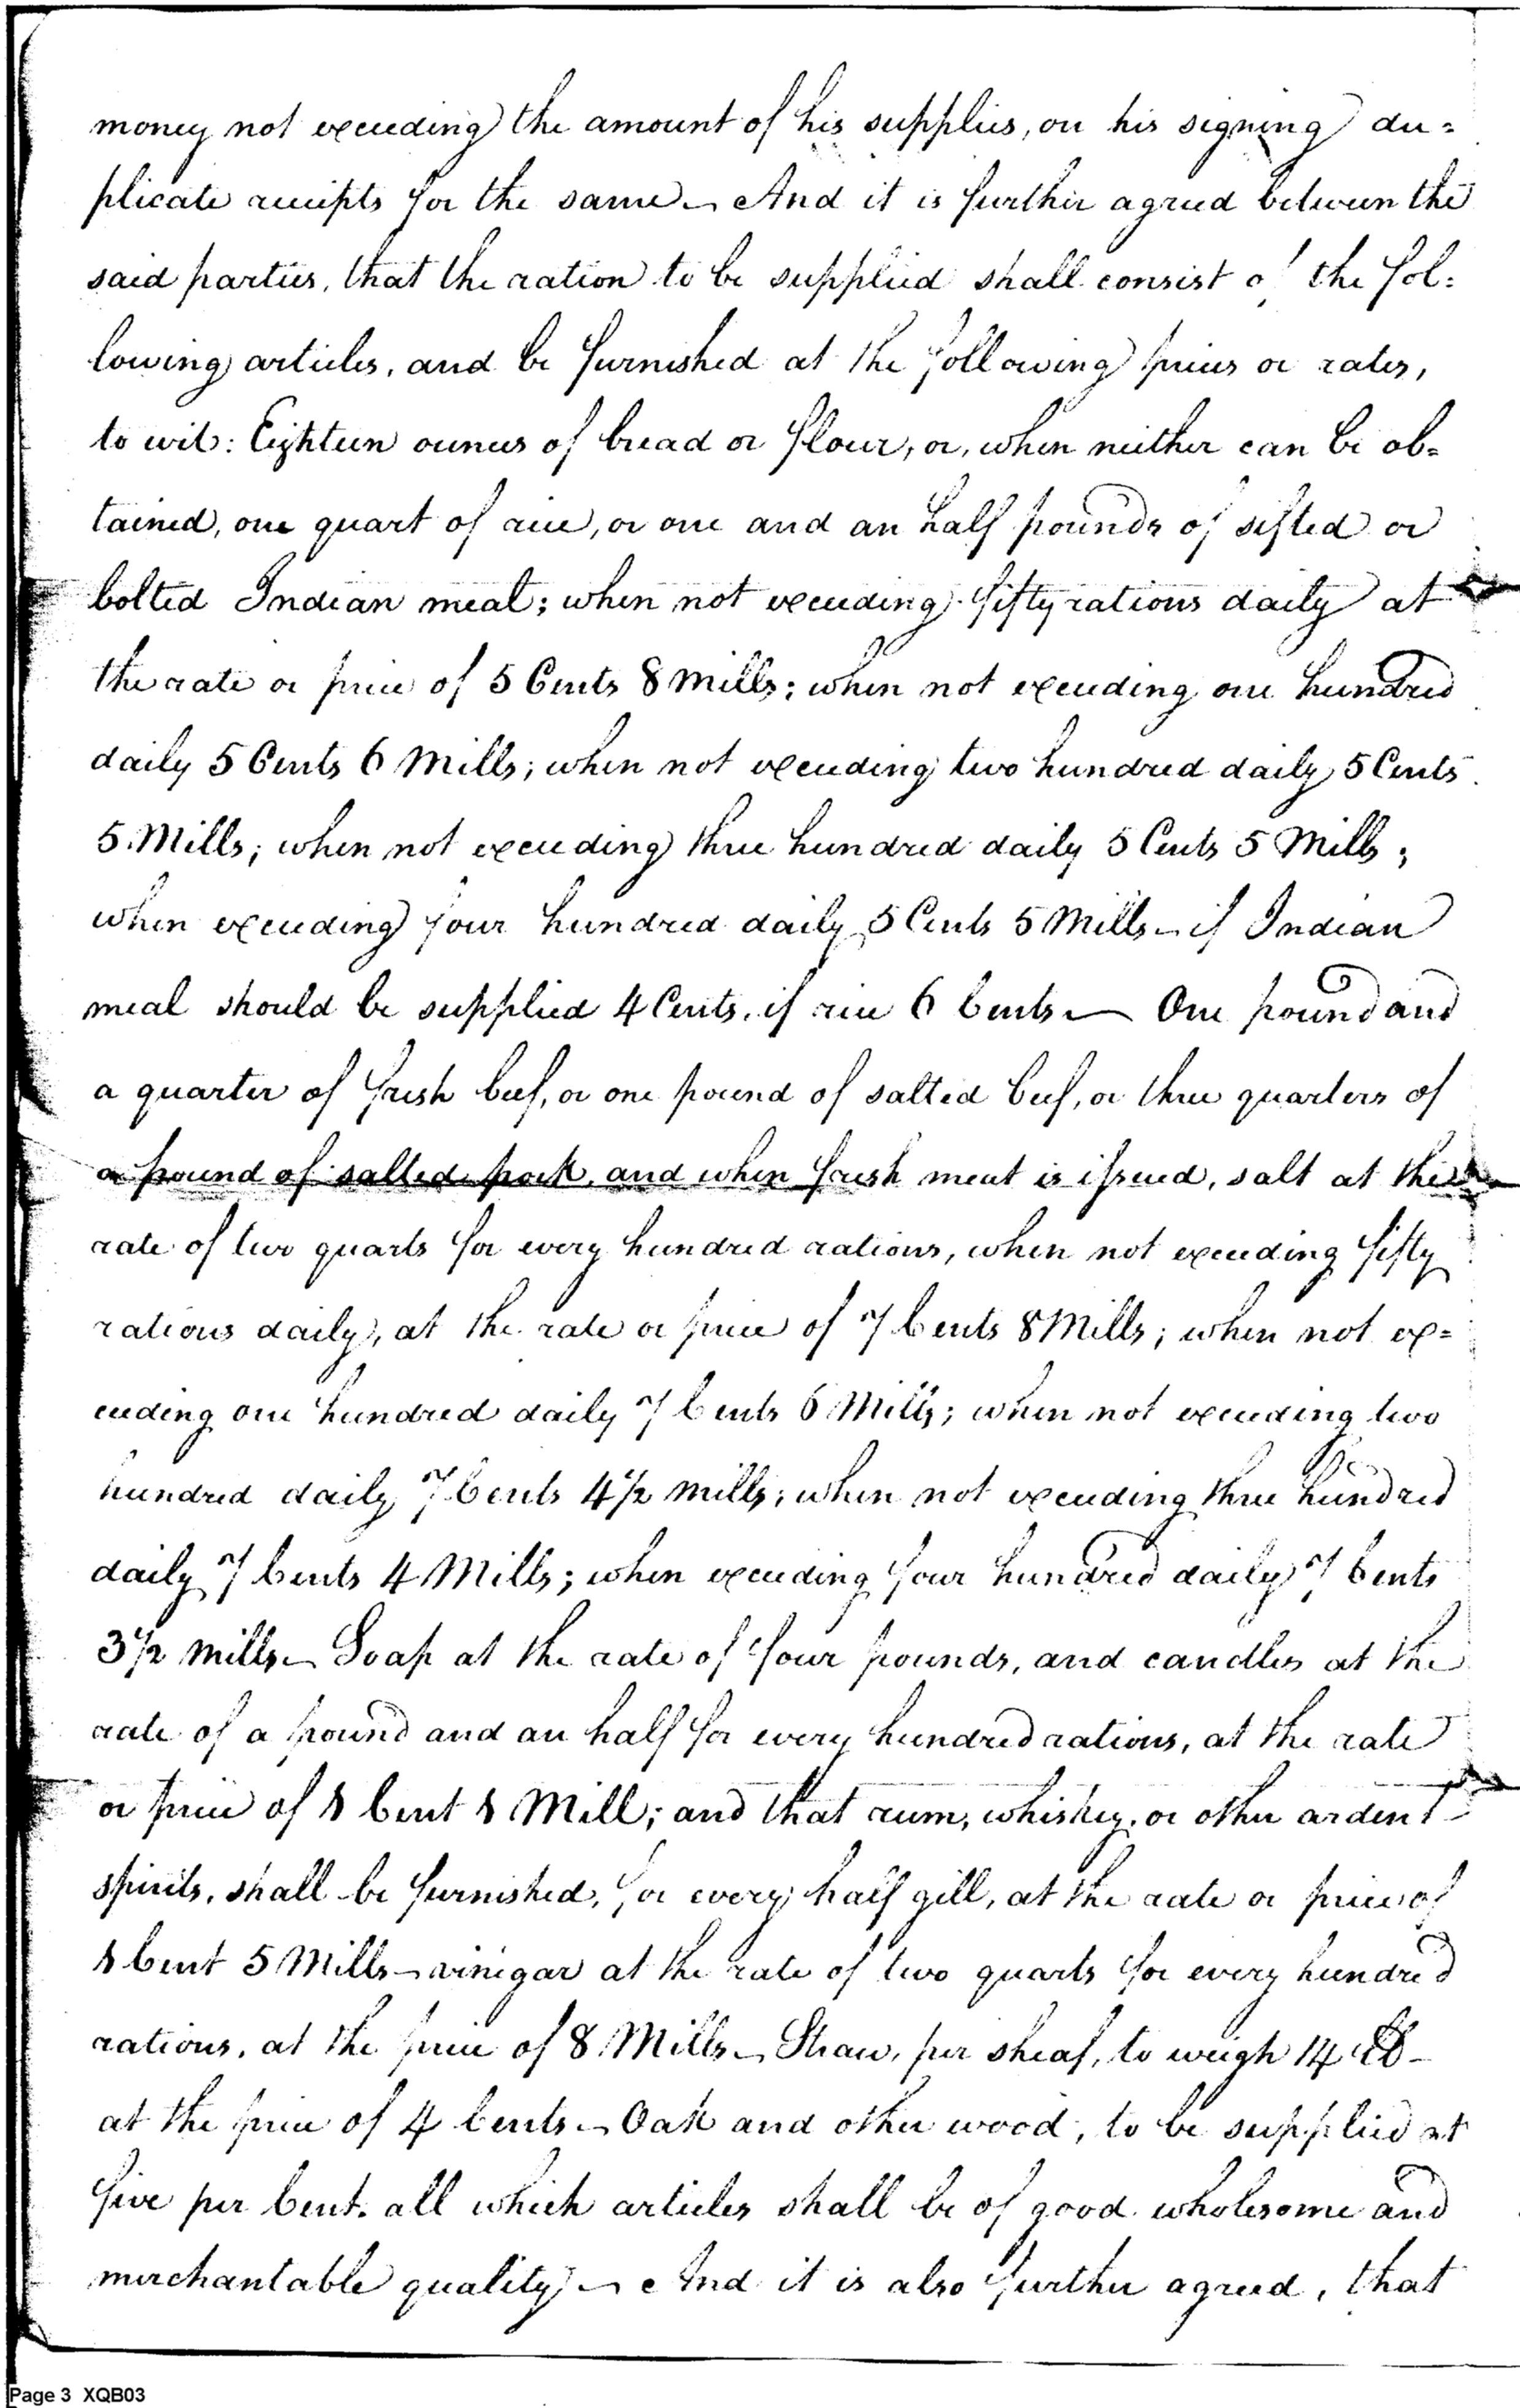 money not exceeding the amount of his supplies, on his signing du=
plicate receipts for the same – And it is further agreed between the
said parties, that the ration to be supplied shall consist of the fol=
lowing articles, and be furnished at the following prices or rates,
to wit: Eighteen ounces of bread or flour, or, when neither can be ob=
tained, one quart of rice, or one and an half pounds of sifted or
bolted Indian meal; when not exceeding fifty rations daily at
the rate or price of 5 Cents 8 Mills; when not exceeding one hundred
daily 5 Cents 6 Mills; when not exceeding two hundred daily 5 Cents
5 Mills; when not exceeding three hundred daily 5 Cents 5 Mills;
when exceeding four hundred daily 5 Cents 5 Mills – if Indian
meal should be supplied 4 Cents, if rice 6 Cents — One pound and
a quarter of fresh beef, or one pound of salted beef, or three quarters of
a pound of salted pork, and when fresh meat is issued, salt at the
rate of two quarts for every hundred rations, when not exceeding fifty
rations daily, at the rate or price of 7 Cents 8 Mills; when not ex=
ceeding one hundred daily 7 Cents 6 Mills; when not exceeding two
hundred daily 7 Cents 4 1/2 Mills; when not exceeding three hundred
daily 7 Cents 4 Mills; when exceeding four hundred daily 7 Cents
3 1/2 Mills – Soap at the rate of four pounds, and candles at the
rate of a pound and an half for every hundred rations, at the rate
or price of 1 Cent 1 Mill; and that rum, whiskey, or other ardent
spirits, shall be furnished, for every half gill, at the rate or price of
1 Cent 5 Mills – vinegar at the rate of two quarts for every hundred
rations, at the price of 8 Mills – Straw, per sheaf, to weigh 14 lb –
at the price of 4 Cents – Oak and other wood, to be supplied at
five per Cent. all which articles shall be of good wholesome and
merchantable quality – And it is also further agreed, that
Page 3 XQB03